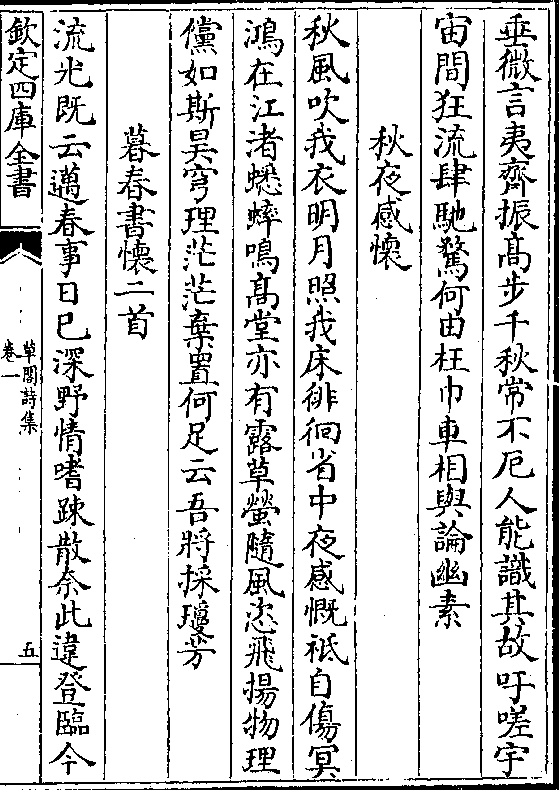 垂微言夷齊振髙步千秋常不厄人能識其故吁嗟宇
宙間狂流肆馳騖何由枉巾車相與論幽素
秋夜感懐
秋風吹我衣明月照我床徘徊省中夜感慨祗自傷冥
鴻在江渚蟋蟀鳴髙堂亦有露草螢隨風恣飛揚物理
儻如斯昊穹理茫茫棄置何足云吾將採瓊芳
暮春書懐二首
流光既云邁春事日已深野情嗜踈散奈此違登臨今
欽定四庫全書
草閣詩集
卷一
五